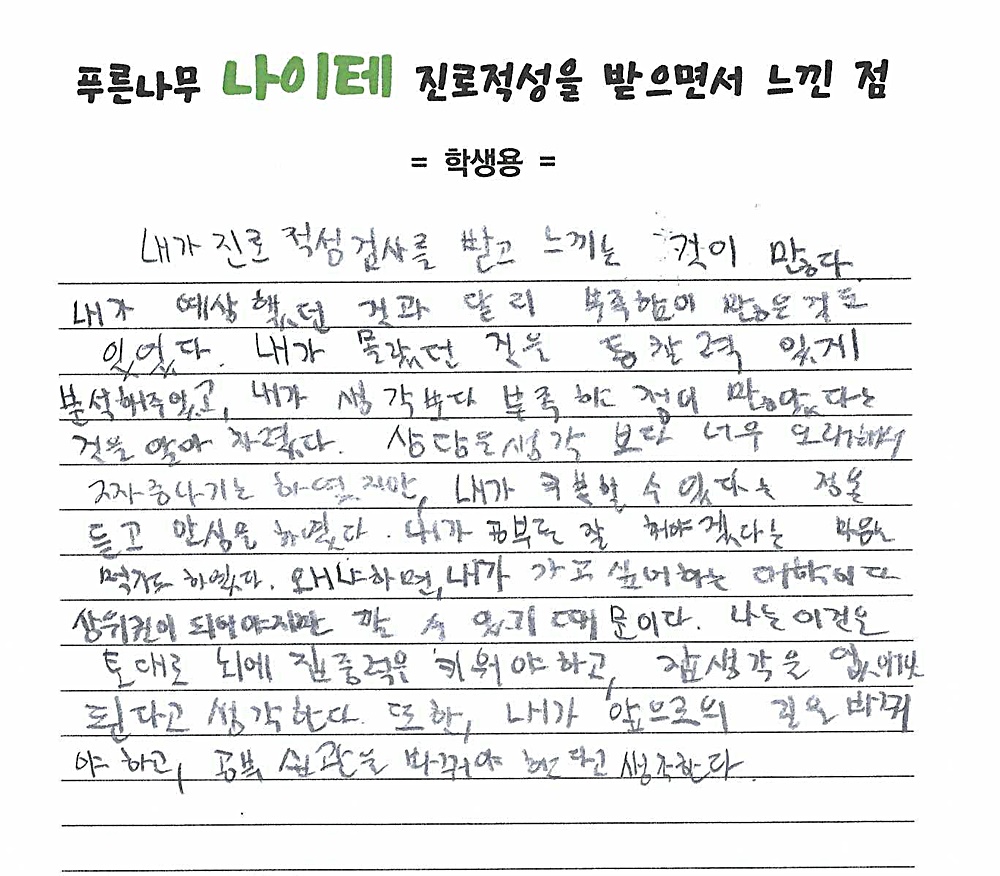 푸른나무 나이테 진로적성을 받으면서 느낀 점
= 학생용 =
내가 진로 적성검사를 받고 느끼는 것이 많다.
내가 예상했던 것과 달리 부족함이 많은 것도
있었다. 내가 몰랐던 것을 통찰력 있게
분석해주었고, 내가 생각보다 부족한 점이 많았다는
것을 알아 차렸다. 상담은 생각 보다 너무 오래해서
하였지만, 내가 수 있다는 점을
듣고 안심을 하였다. 내가 공부도 잘 해야겠다는 마음도
먹기도 하였다. 왜냐하면, 내가 가고 싶어하는 대학이 다
상위권이 되어야지만 갈 수 있기 때문이다. 나는 이것을
토대로 뇌에 집중력을 키워야 하고, 잡생각을 없애야
된다고 생각한다. 또한, 내가 앞으로의 길을 바꿔
야 하고, 공부 습관을 바꿔야 한다고 생각한다.